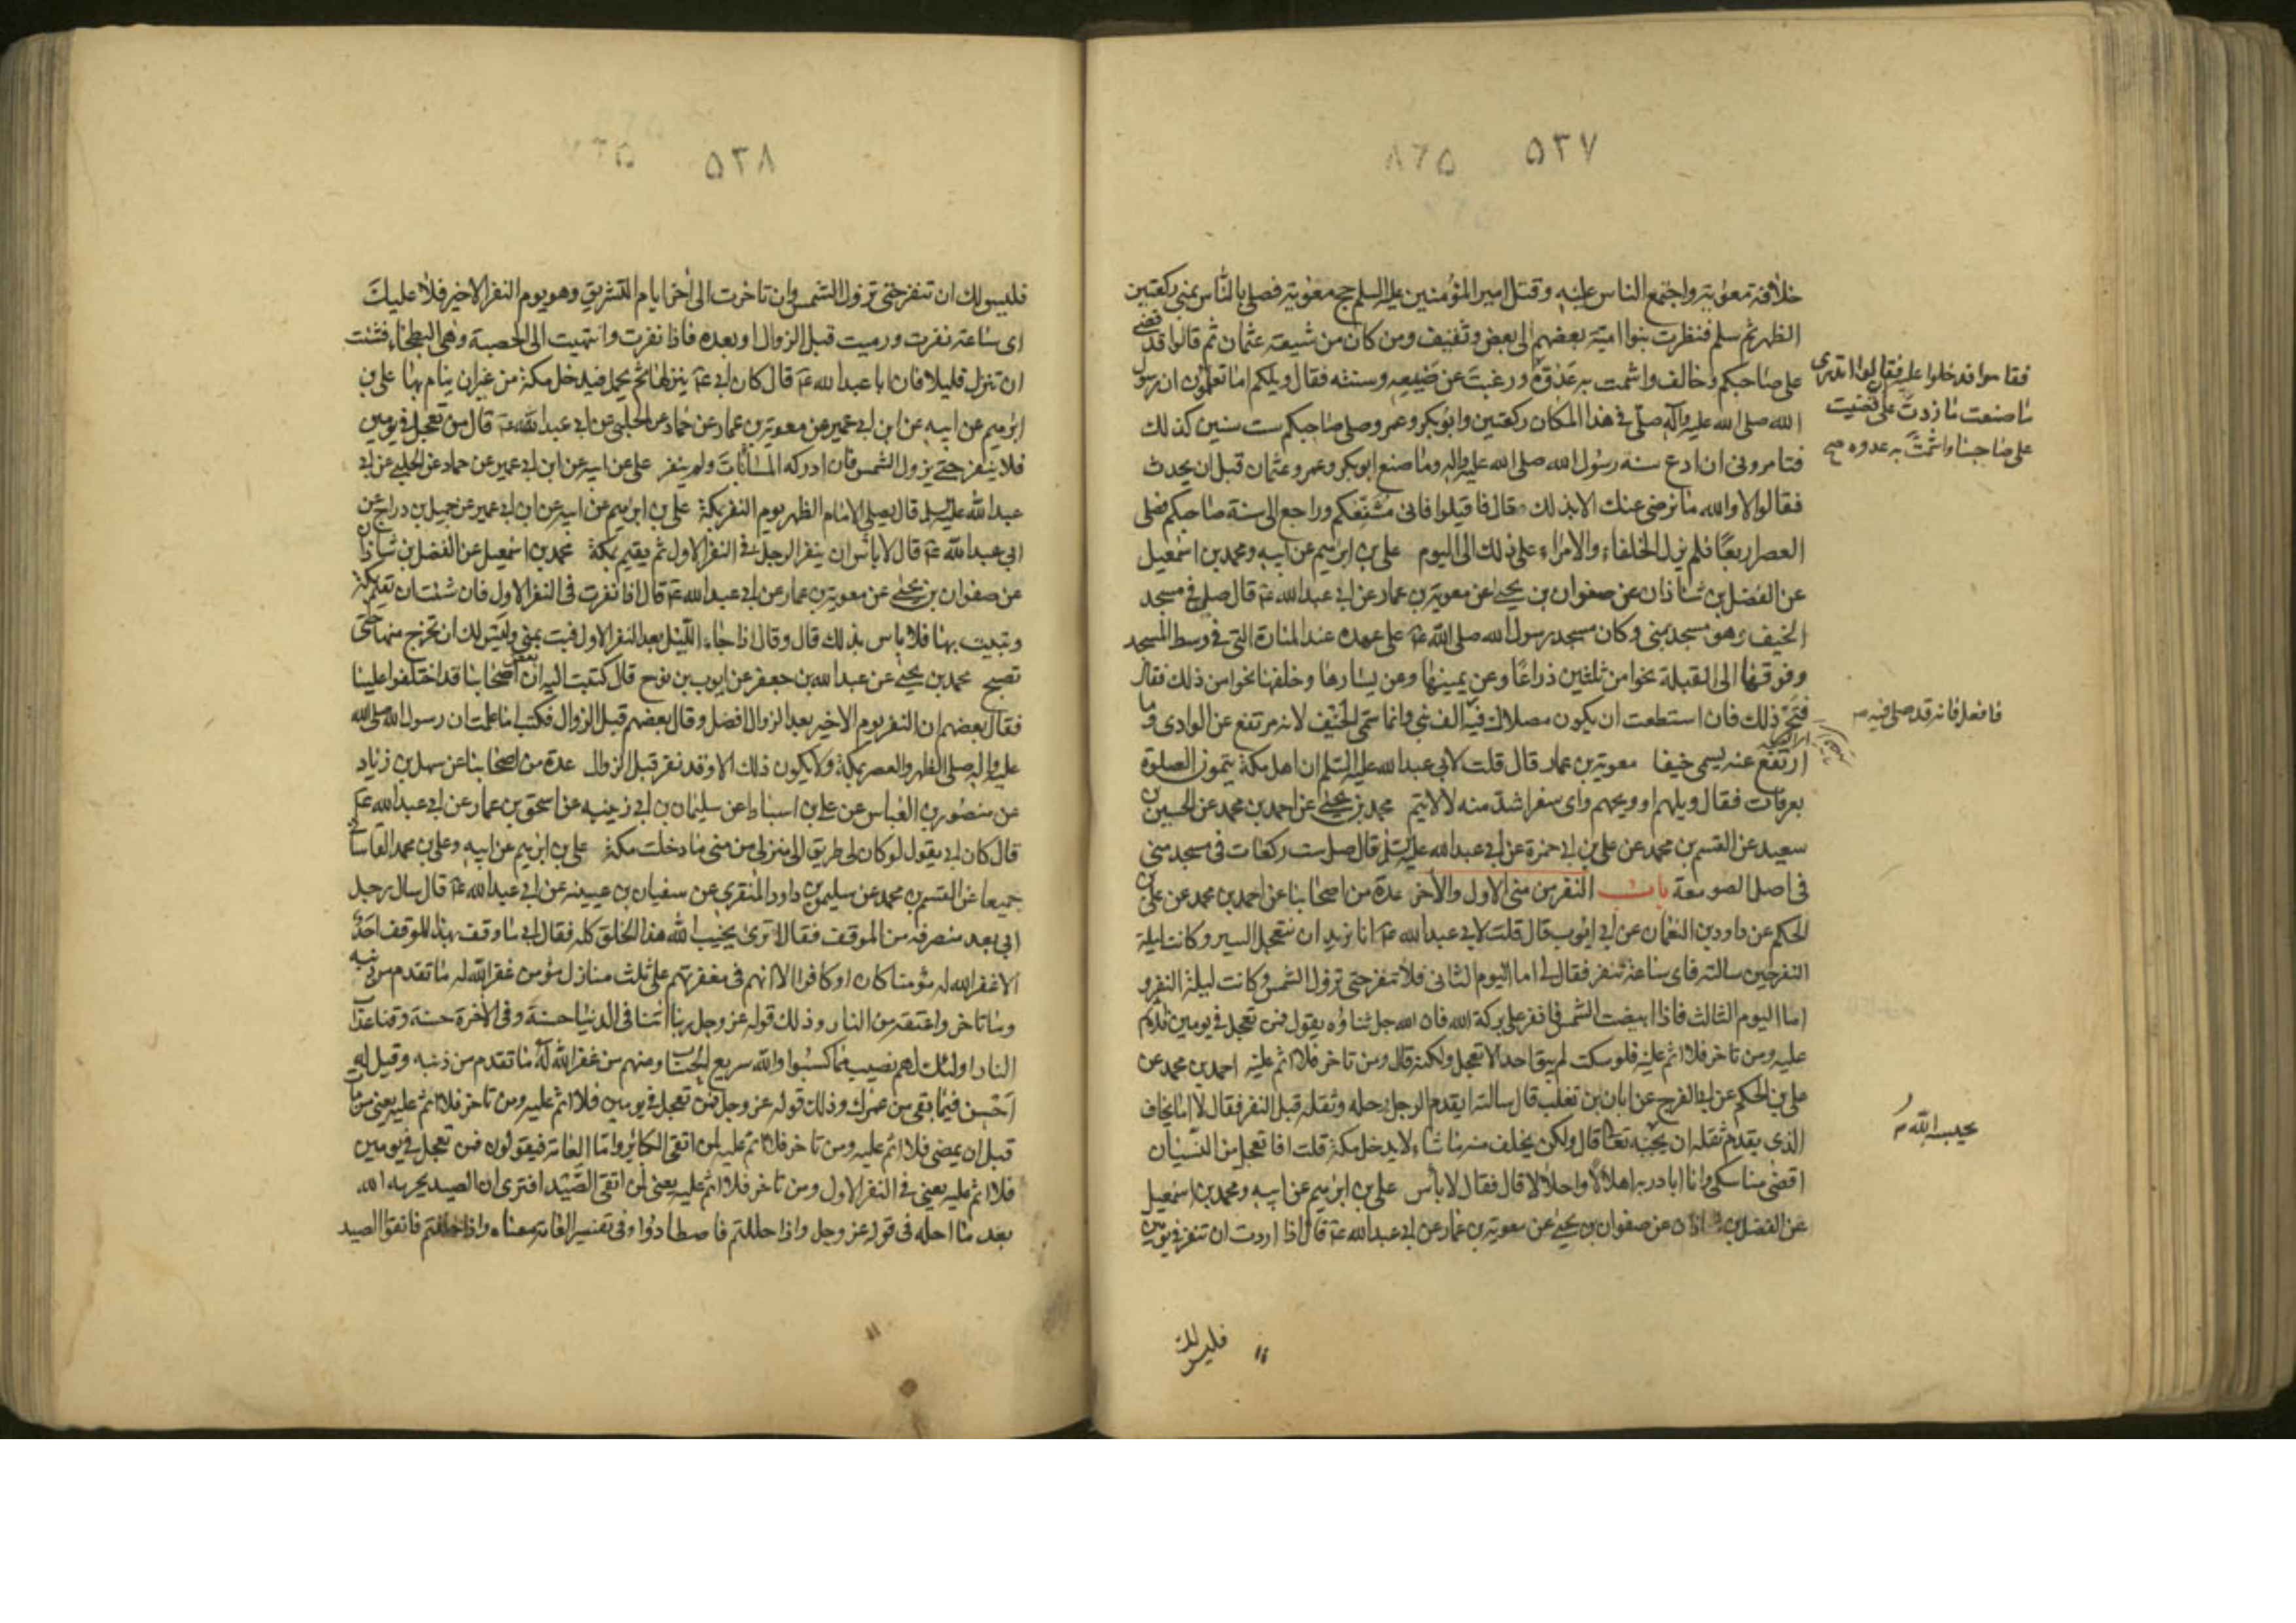 ۵۳۷
خلافته معوية واجتمع الناس عليه وقتل امير المؤمنين عليه السلم حج معوية فصلى بالناس بمنى ركعتين
الظهر ثم سلم فنظرت بنوا امية بعضهم الى بعض وثقيف ومن كان من شيعة عثمان ثم قالوا قد قضى
على صاحبكم وخالف واشمت به عدوه ورغبت عن صنيعه وسنته فقال ويلكم اما تعلمون ان رسول
الله صلى الله عليه وآله صلى في هذا المكان ركعتين وابوبكر وعمر وصلى صاحبكم ست سنين كذلك
فتامروني ان ادع سنة رسول الله صلى الله عليه واله وما صنع ابوبكر وعمر وعثمان قبل ان يحدث
فقالوا لا والله ما نرضى عنك الا بذلك قال فاقيلوا فاني مشفعكم وراجع الى سنة صاحبكم فصلى
العصر اربعا فلم يزل الخلفاء والامراء على ذلك الى اليوم علي بن ابرهيم عن ابيه ومحمد بن اسمعيل
عن الفضل بن شاذان عن صفوان بن يحيى عن معوية بن عمار عن ابي عبد الله عم قال صل في مسجد
الخيف وهو مسجد بمنى وكان مسجد رسول الله صلى الله عم على عهده عند المنارة التي في وسط المسجد
وفوقها الى القبلة نحوا من ثلثين ذراعا وعن يمينها وعن يسارها وخلفها نحوا من ذلك فقال
فتحر ذلك فان استطعت ان يكون مصلاك فيه الف نبي وانما سمى الخيف لانه مرتفع عن الوادى وما
ارتفع عنه يسمى خيفا معوية بن عمار قال قلت لابي عبد الله عليه السلم ان اهل مكة يتمون الصلوة
بعرفات فقال ويلهم او ويحهم واى سفر اشد منه لا لا يتم محمد بن يحيى عن احمد بن محمد عن الحسين بن
سعيد عن القسم بن محمد عن علي بن ابي حمزة عن ابي عبد الله عليه السلم قال صل ست ركعات في مسجد منى
في اصل الصومعة باب النفر من منى الاول والآخر عدة من اصحابنا عن احمد بن محمد عن علي بن
الحكم عن داود بن النعمان عن ابي ايوب قال قلت لابي عبد الله عم انا نريد ان نتعجل السير وكانت ليلة
النفر حين سالته فاى ساعة ننفر فقال لي اما اليوم الثاني فلا تنفر حتى تزول الشمس وكانت ليلة النفر و
اما اليوم الثالث فاذا ابيضت الشمس فانفر على بركة الله فان الله جل ثناؤه يقول فمن تعجل في يومين فلا اثم
عليه ومن تاخر فلا اثم عليه فلو سكت لم يبق احد الا تعجل ولكنه قال ومن تاخر فلا اثم عليه احمد بن محمد عن
علي بن الحكم عن ابي الفرج عن ابان بن تغلب قال سالته ايقدم الرجل رحله وثقله قبل النفر فقال لا اما يخاف
الذى يقدم ثقله ان يحبسه تعالى قال ولكن يخلف منه ما شاء لا يدخل مكة قلت افاتعجل من النسيان
اقضى مناسكى وانا ابادر به اهلالا واحلالا قال فقال لا بأس علي بن ابرهيم عن ابيه ومحمد بن اسمعيل
عن الفضل بن شاذان عن صفوان بن يحيى عن معوية بن عمار عن ابي عبد الله عم قال اذا اردت ان تنفر في يومين
فليس لك
على صاحبنا واشمت به عدوه صح
فافعل فانه قد صلى فيه
يحبسه الله
۵۳۸
فليس لك ان تنفر حتى تزول الشمس وان تاخرت الى آخر ايام التشريق وهو يوم النفر الاخير فلا عليك
اى ساعة نفرت ورميت قبل الزوال او بعده فاذا نفرت وانتهيت الى الحصبة وهى البطحاء فشئت
ان تنزل قليلا فان ابا عبد الله عم قال كان ابي عم ينزلها ثم يحمل فيدخل مكة من غير ان ينام بها علي بن
ابرهيم عن ابيه عن ابن ابي عمير عن معوية بن عمار عن حماد عن الحلبي عن ابي عبد الله عم قال من تعجل في يومين
فلا ينفر حتى يزول الشمس فان ادركه المساء بات ولم ينفر علي عن ابيه عن ابن ابي عمير عن حماد عن الحلبي عن ابي
عبد الله عليه السلم قال يصلى الامام الظهر يوم النفر بمكة علي بن ابرهيم عن ابيه عن ابن ابي عمير عن جميل بن دراج عن
ابي عبد الله عم قال لا بأس ان ينفر الرجل في النفر الاول ثم يقيم بمكة محمد بن اسمعيل عن الفضل بن شاذان
عن صفوان بن يحيى عن معوية بن عمار عن ابي عبد الله عم قال اذا نفرت في النفر الاول فان شئت ان تقيم بمكة
وتبيت بها فلا باس بذلك قال وقال اذا جاء الليل بعد النفر الاول فبت بمنى وليس لك ان تخرج منها حتى
تصبح محمد بن يحيى عن عبد الله بن جعفر عن ايوب بن نوح قال كتبت اليه ان اصحابنا قد اختلفوا علينا
فقال بعضهم ان النفر يوم الاخير بعد الزوال افضل وقال بعضهم قبل الزوال فكتب اما علمت ان رسول الله صلى الله
عليه واله صلى الظهر والعصر بمكة ولا يكون ذلك الا وقد نفر قبل الزوال عدة من اصحابنا عن سهل بن زياد
عن منصور بن العباس عن علي بن اسباط عن سليمان بن ابي زينبه عن اسحق بن عمار عن ابي عبد الله عم
قال كان ابي يقول لو كان لى طريق الى منزلى من منى ما دخلت مكة علي بن ابرهيم عن ابيه وعلي بن محمد القاساني
جميعا عن القسم بن محمد عن سليمن بن داود المنقري عن سفيان بن عيينه عن ابي عبد الله عم قال سال رجل
ابي بعد منصرفه من الموقف فقال اترى يخيب الله هذا الخلق كله فقال ابي ما وقف بهذا الموقف احد
الا غفر الله له مؤمنا كان او كافرا الا انهم في مغفرتهم على ثلث منازل مؤمن غفر الله له ما تقدم من ذنبه
وما تاخر واعتقه من النار وذلك قوله عز وجل ربنا اتنا في الدنيا حسنة وفي الآخرة حسنة وقنا عذاب
النار اولئك لهم نصيب مما كسبوا والله سريع الحساب ومنهم من غفر الله له ما تقدم من ذنبه وقيل له
احسن فيما بقى من عمرك وذلك قوله عز وجل فمن تعجل في يومين فلا اثم عليه ومن تاخر فلا اثم عليه يعنى من مات
قبل ان يمضى فلا اثم عليه ومن تاخر فلا اثم عليه لمن اتقى الكبائر واما العامة فيقولون فمن تعجل في يومين
فلا اثم عليه يعنى في النفر الاول ومن تاخر فلا اثم عليه يعنى لمن اتقى الصيد افترى ان الصيد يحرمه الله
بعد ما احله في قوله عز وجل واذا حللتم فاصطادوا وفي تفسير العامة معناه واذا حللتم فاتقوا الصيد